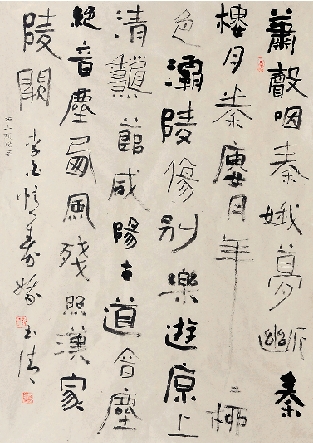 蕭聲咽秦娥夢斷秦
樓月秦樓月年〻柳
色灞陵傷別樂遊原上
清秋節咸陽古道音塵
絕音塵西風殘照漢家
陵闕 李白憶秦娥